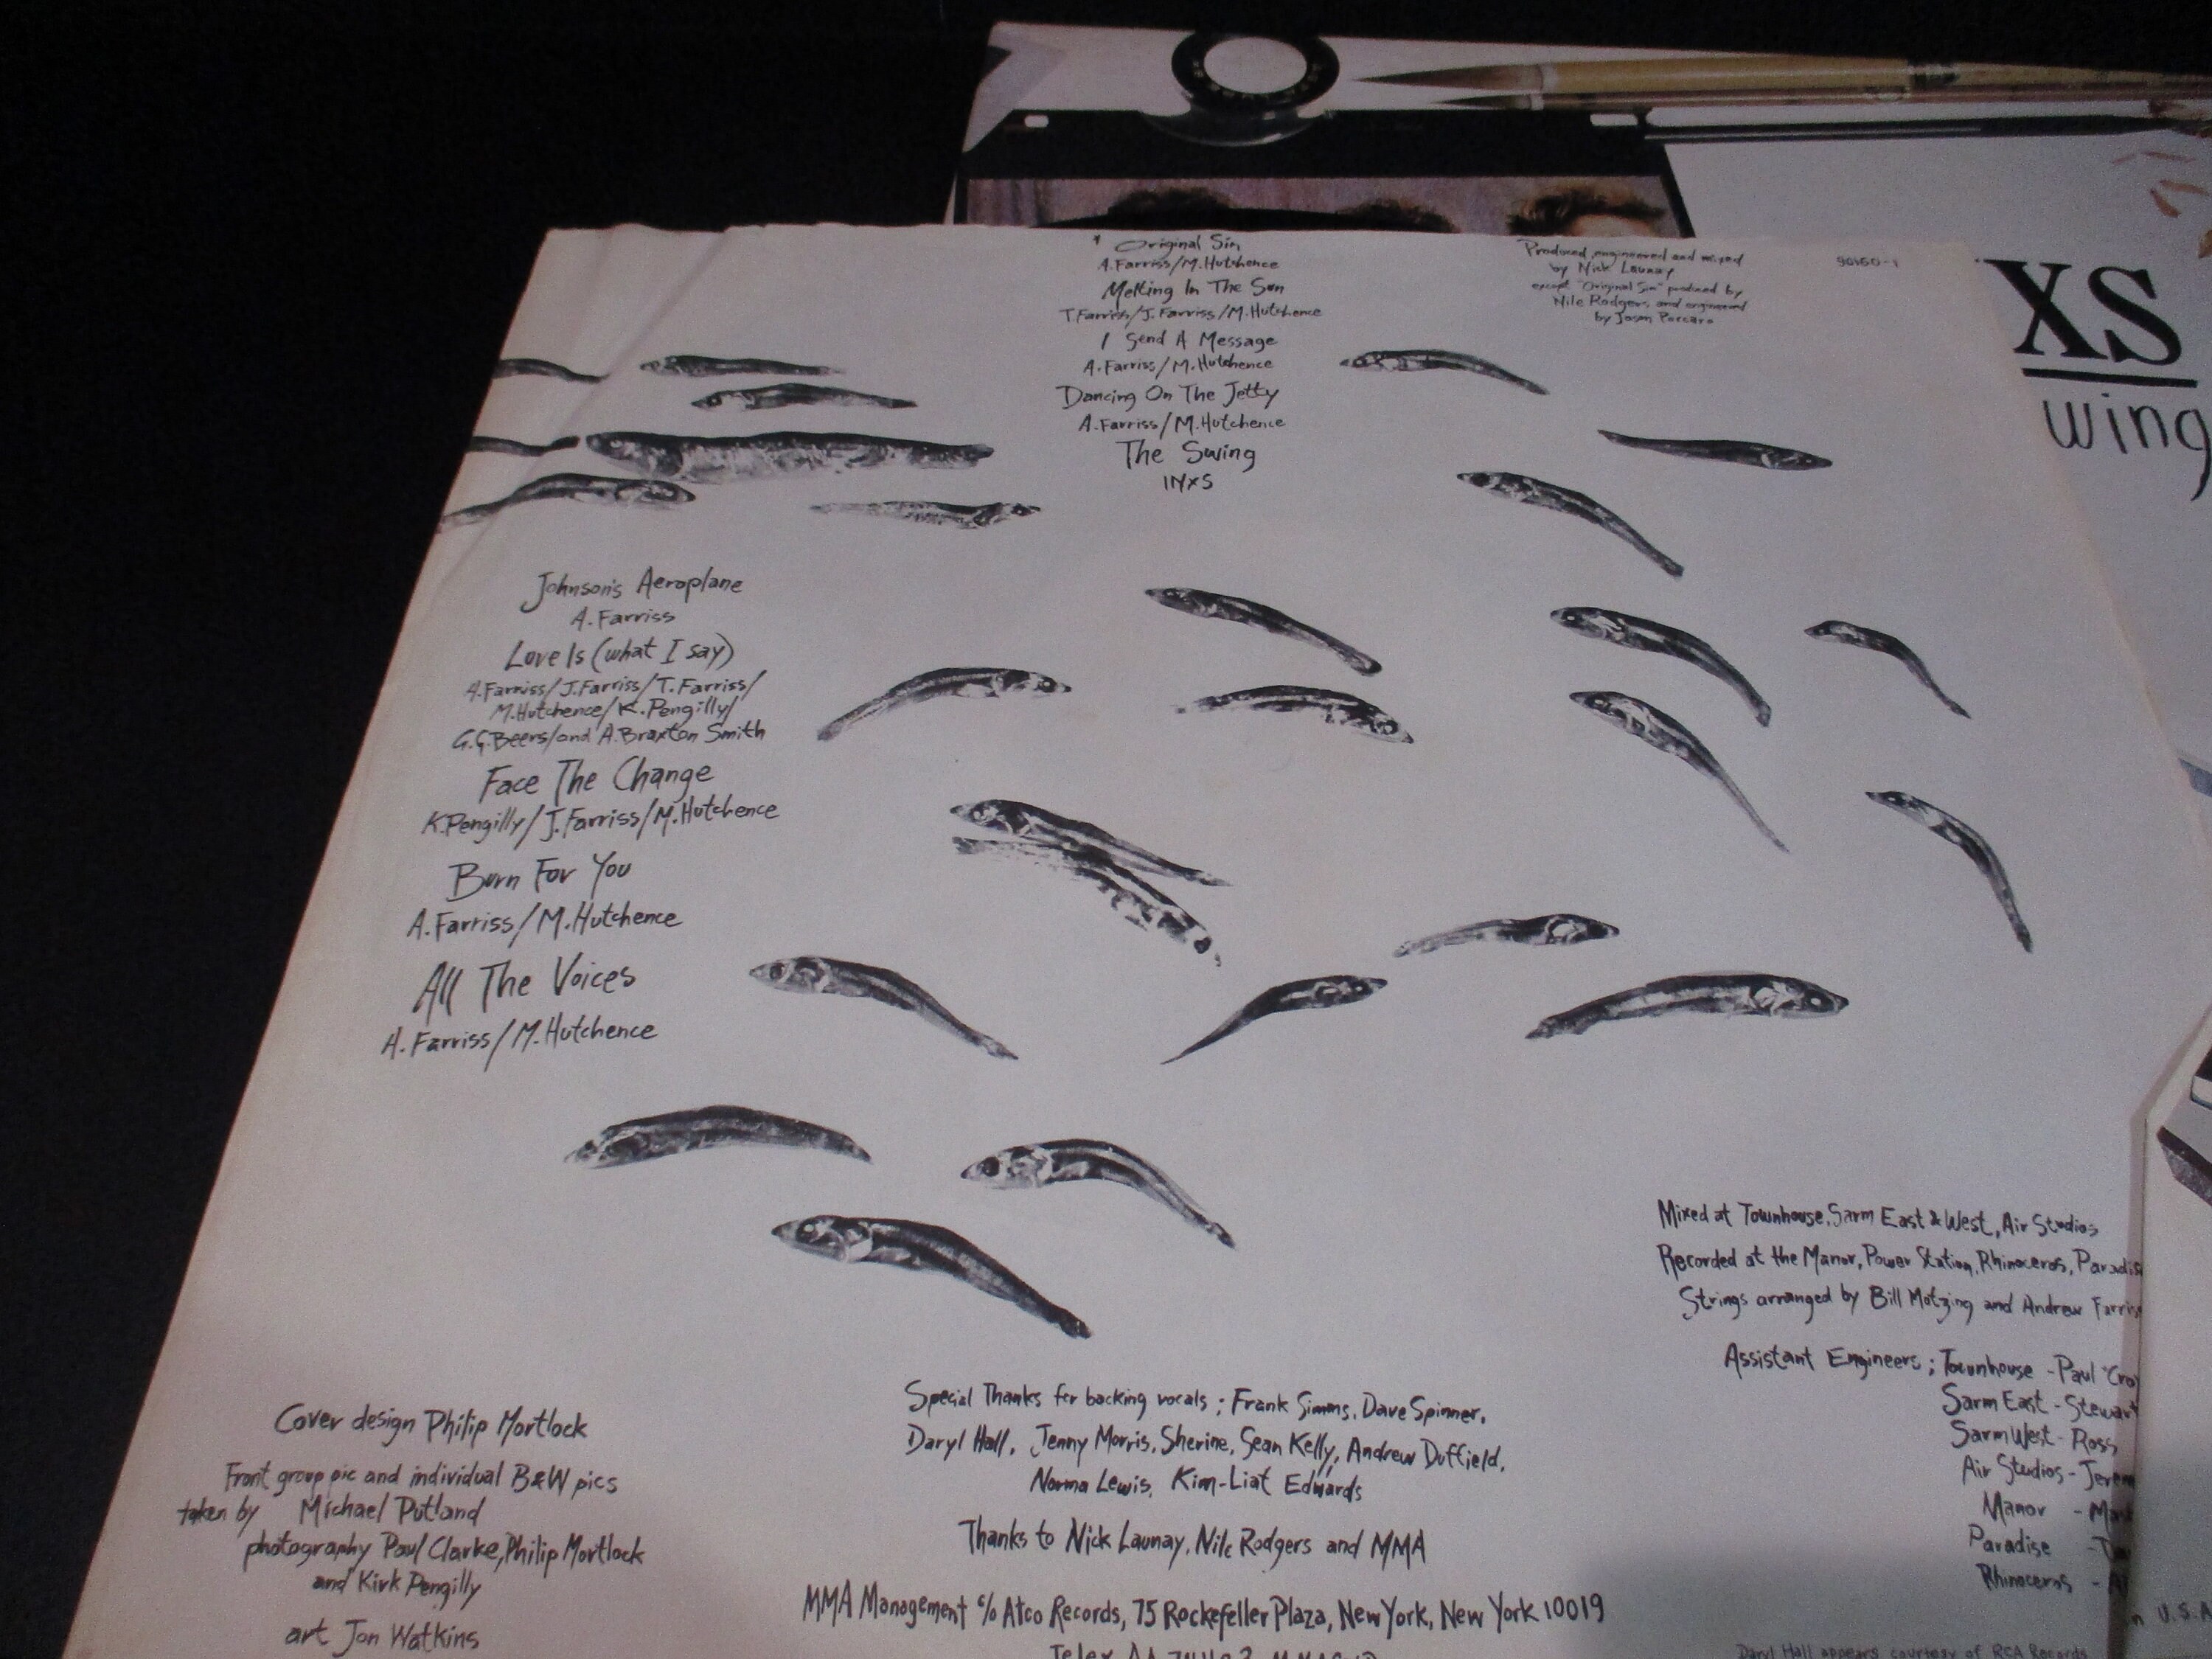 * Original Sin
A.Farriss/M.Hutchence
Melting In The Sun
T.Farriss/J.Farriss/M.Hutchence
I Send A Message
A.Farriss/M.Hutchence
Dancing On The Jetty
A.Farriss/M.Hutchence
The Swing
INXS
Produced, engineered and mixed
by Nick Launay
except "Original Sin" produced by
Nile Rodgers, and engineered
by Jason
90160-1
XS
wing
Johnson's Aeroplane
A.Farriss
Love Is (what I say)
A.Farriss/J.Farriss/T.Farriss/
M.Hutchence/K.Pengilly/
G.G.Beers/and A.Braxton Smith
Face The Change
K.Pengilly/J.Farriss/M.Hutchence
Burn For You
A.Farriss/M.Hutchence
All The Voices
A.Farriss/M.Hutchence
Mixed at Townhouse, Sarm East & West, Air Studios
Recorded at the Manor, Power Station, Rhinoceros, Paradis
Strings arranged by Bill Motzing and Andrew Farris
Assistant Engineers; Townhouse - Paul "Cro
Sarm East - Stewart
Sarm West - Ross
Air Studios - Jerem
Manor - Mar
Paradise -
Rhinoceros - Al
Special Thanks for backing vocals; Frank Simms, Dave Spinner,
Daryl Hall, Jenny Morris, Sherine, Sean Kelly, Andrew Duffield,
Norma Lewis, Kim-Liat Edwards
Thanks to Nick Launay, Nile Rodgers and MMA
MMA Management c/o Atco Records, 75 Rockefeller Plaza, New York, New York 10019
Telex AA
Cover design Philip Mortlock
Front group pic and individual B&W pics
taken by Michael Putland
photography Paul Clarke, Philip Mortlock
and Kirk Pengilly
art Jon Watkins
n U.S.A
Daryl Hall appears courtesy of RCA Records